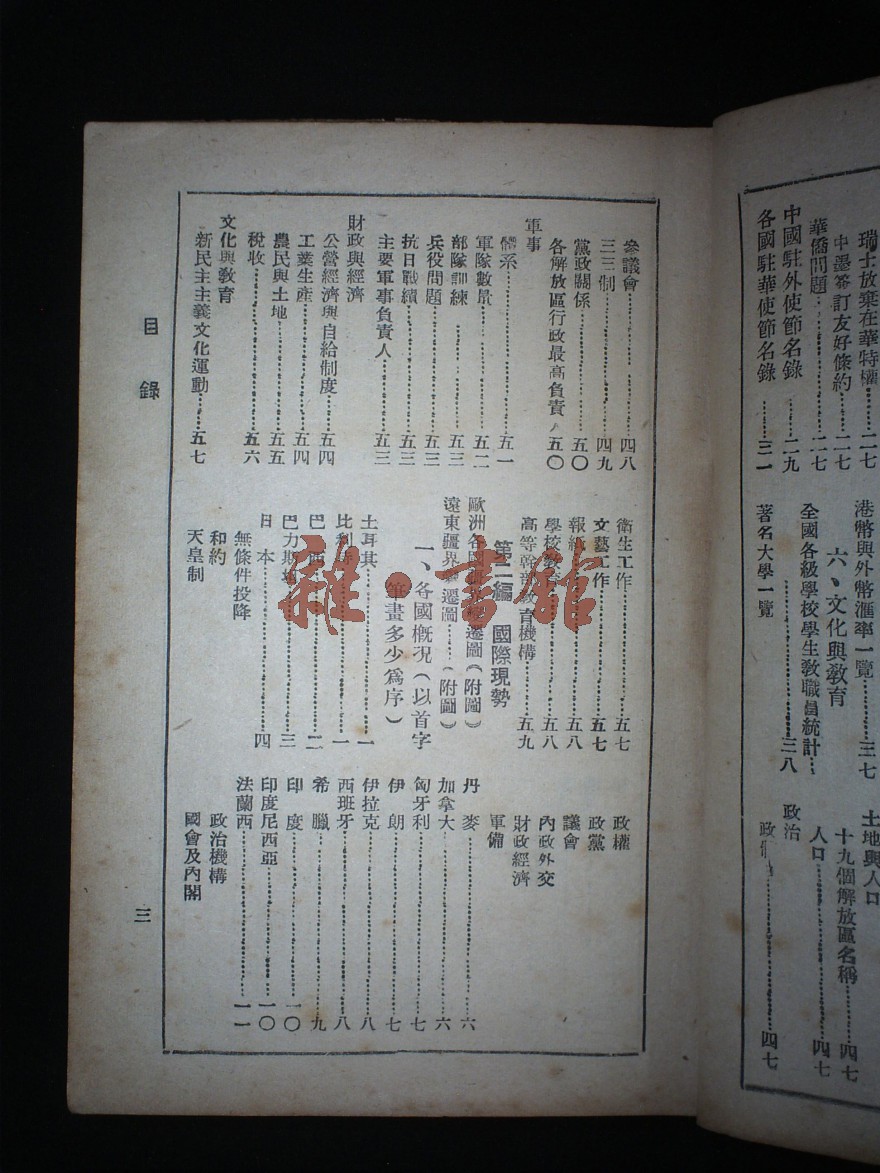 瑞士放棄在華特權……二七
中墨簽訂友好條約……二七
華僑問題……二七
中國駐外使節名錄……二九
各國駐華使節名錄……三一
港幣與外幣滙率一覽……三七
六、文化與敎育
全國各級學校學生敎職員統計…
……三八
著名大學一覽
土地與人口
十九個解放區名稱……四七
人口……四七
政治
政……四七
參議會……四八
三三制……四九
黨政關係……五〇
各解放區行政最高負責人五〇
軍事
體系……五一
軍隊數量……五二
部隊訓練……五三
兵役問題……五三
抗日戰績……五三
主要軍事負責人……五三
財政與經濟
公營經濟與自給制度……五四
工業生產……五四
農民與土地……五五
稅收……五六
文化與敎育
新民主主義文化運動……五七
衞生工作……五七
文藝工作……五七
報紙……五八
學校敎育……五八
高等幹部敎育機構……五九
第二編 國際現勢
歐洲各國疆界變遷圖(附圖)
遠東疆界變遷圖……(附圖)
一、各國槪況(以首字
筆畫多少爲序)
土耳其……一
比利時……一
巴西……二
巴力斯坦……三
日本……四
無條件投降
和約
天皇制
政權
政黨
議會
內政外交
財政經濟
軍備
丹麥……六
加拿大……六
匈牙利……七
伊朗……七
伊拉克……八
西班牙……八
希臘……九
印度……一〇
印度尼西亞……一〇
法蘭西……一一
政治機構
國會及內閣
目錄
三
雜·書館